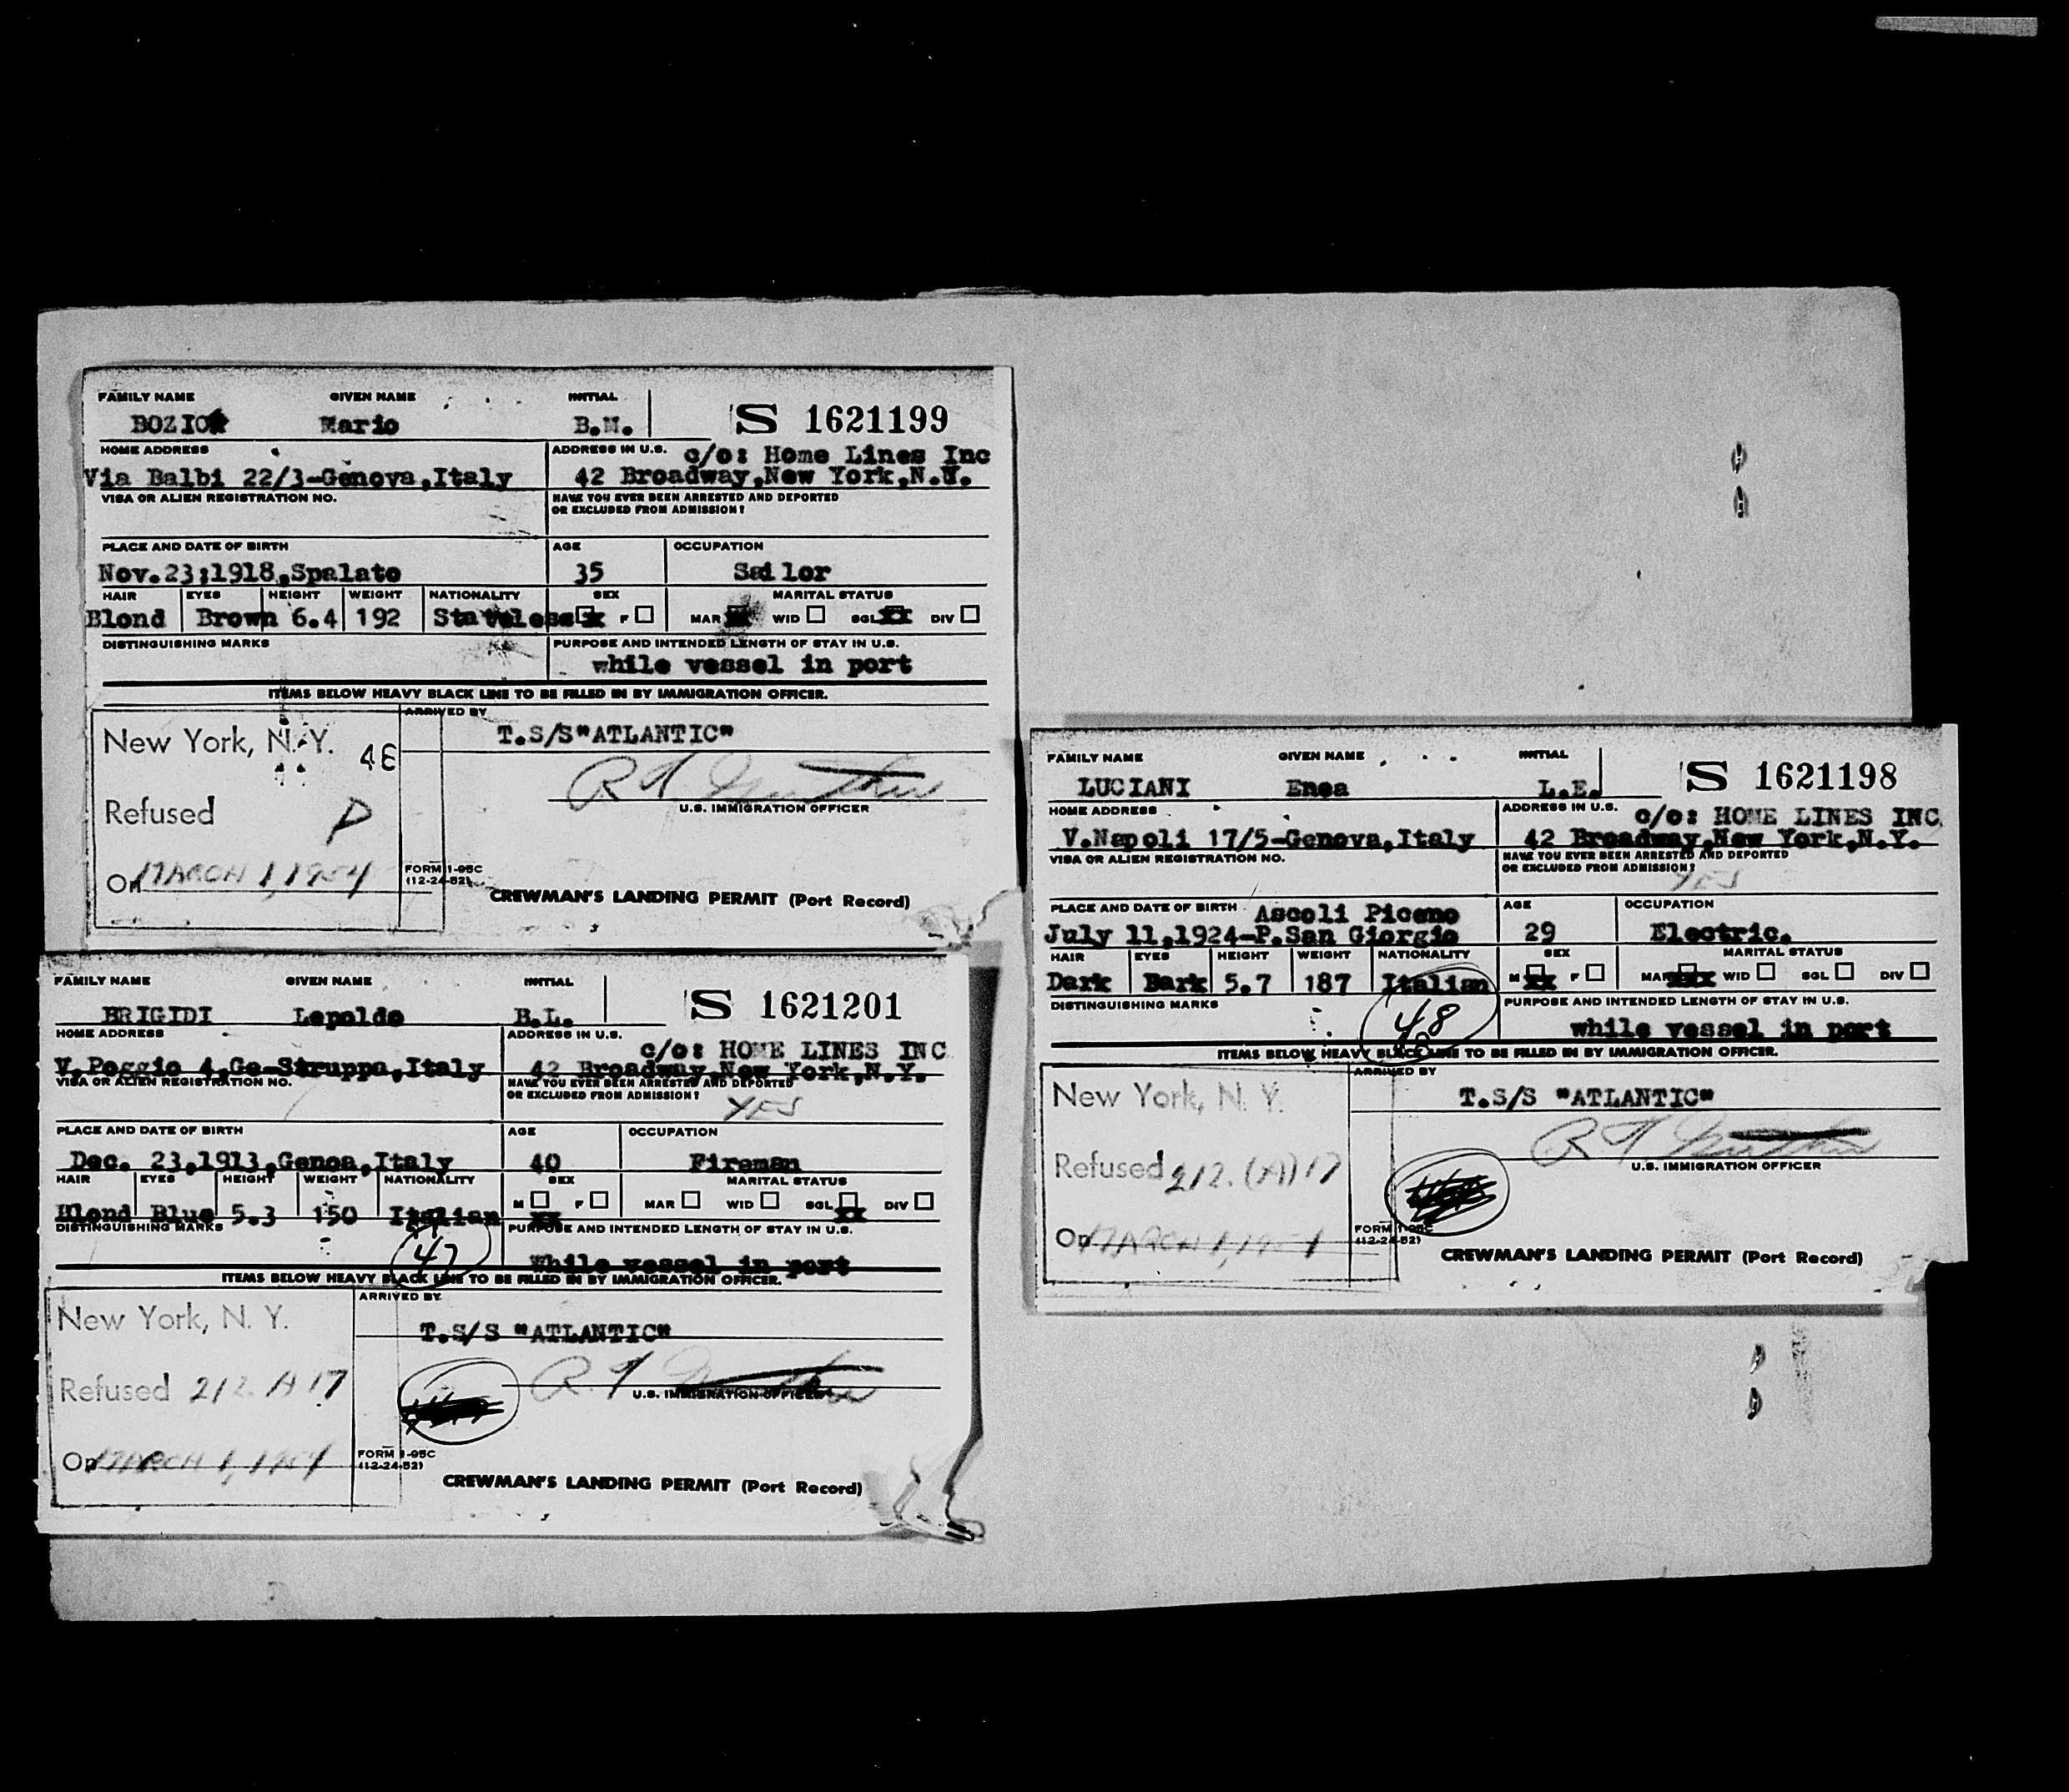 FAMILY NAME GIVEN NAME INITIAL
BOZIO Mario B.M. S 1621199
HOME ADDRESS ADDRESS IN U.S. c/o: Home Lines Inc
Via Balbi 22/3-Genova,Italy 42 Broadway,New York,N.Y.
VISA OR ALIEN REGISTRATION NO. HAVE YOU EVER BEEN ARRESTED AND DEPORTED
OR EXCLUDED FROM ADMISSION?
PLACE AND DATE OF BIRTH AGE OCCUPATION
Nov.23;1918,Spalato 35 Sailor
HAIR EYES HEIGHT WEIGHT NATIONALITY SEX MARITAL STATUS
Blond Brown 6.4 192 Stateless x F MAR WID SGL xx DIV
DISTINGUISHING MARKS PURPOSE AND INTENDED LENGTH OF STAY IN U.S.
while vessel in port
ITEMS BELOW HEAVY BLACK LINE TO BE FILLED IN BY IMMIGRATION OFFICER.
ARRIVED BY
New York, N.Y. 46 T.S/S"ATLANTIC"
U.S. IMMIGRATION OFFICER
Refused P
On MARCH 1, 1954 FORM I-95C
(12-24-52)
CREWMAN'S LANDING PERMIT (Port Record)
FAMILY NAME GIVEN NAME INITIAL
BRIGIDI Lepoldo B.L. S 1621201
HOME ADDRESS ADDRESS IN U.S.
c/o: HOME LINES INC
V.Poggio 4,Ge-Struppa,Italy 42 Broadway,New York,N.Y.
VISA OR ALIEN REGISTRATION NO. HAVE YOU EVER BEEN ARRESTED AND DEPORTED
OR EXCLUDED FROM ADMISSION? YES
PLACE AND DATE OF BIRTH AGE OCCUPATION
Dec. 23,1913,Genoa,Italy 40 Fireman
HAIR EYES HEIGHT WEIGHT NATIONALITY SEX MARITAL STATUS
M F MAR WID SGL xx DIV
Blond Blue 5.3 150 Italian xx
DISTINGUISHING MARKS PURPOSE AND INTENDED LENGTH OF STAY IN U.S.
47 While vessel in port
ITEMS BELOW HEAVY BLACK LINE TO BE FILLED IN BY IMMIGRATION OFFICER.
ARRIVED BY
New York, N. Y. T.S/S "ATLANTIC"
Refused 212 A 17
U.S. IMMIGRATION OFFICER
On MARCH 1, 1954 FORM I-95C
(12-24-52)
CREWMAN'S LANDING PERMIT (Port Record)
FAMILY NAME GIVEN NAME INITIAL
LUCIANI Enea L.E. S 1621198
HOME ADDRESS ADDRESS IN U.S. c/o: HOME LINES INC.
V.Napoli 17/5-Genova,Italy 42 Broadway,New York,N.Y.
VISA OR ALIEN REGISTRATION NO. HAVE YOU EVER BEEN ARRESTED AND DEPORTED
OR EXCLUDED FROM ADMISSION? YES
PLACE AND DATE OF BIRTH Ascoli Piceno AGE OCCUPATION
July 11,1924-P.San Giorgio 29 Electric.
HAIR EYES HEIGHT WEIGHT NATIONALITY SEX MARITAL STATUS
Dark Bark 5.7 187 Italian M xx F MAR xxx WID SGL DIV
DISTINGUISHING MARKS PURPOSE AND INTENDED LENGTH OF STAY IN U.S.
48 while vessel in port
ITEMS BELOW HEAVY BLACK LINE TO BE FILLED IN BY IMMIGRATION OFFICER.
ARRIVED BY
New York, N. Y. T.S/S "ATLANTIC"
U.S. IMMIGRATION OFFICER
Refused 212.(A)17
On MARCH 1, 1954 FORM I-95C
(12-24-52)
CREWMAN'S LANDING PERMIT (Port Record)